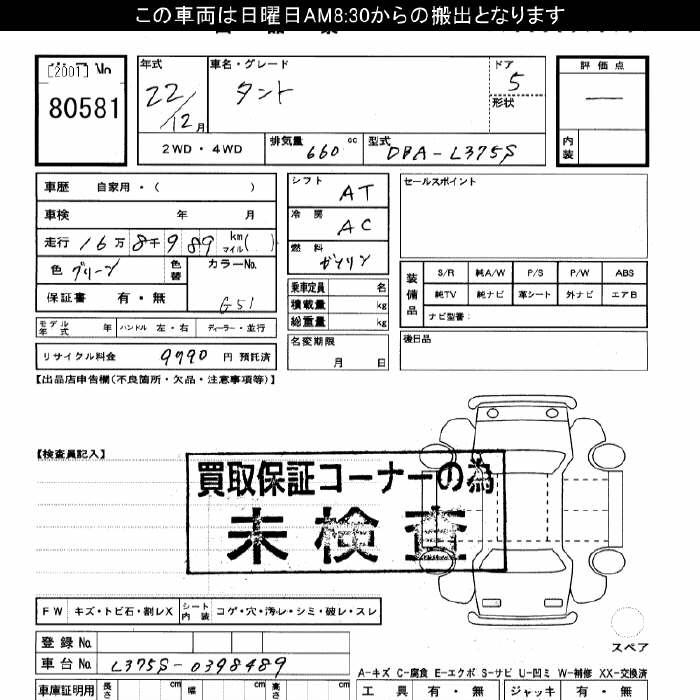 この車両は日曜日AM8:30からの搬出となります
[2001] No
80581
年式
22/12月
車名・グレード
タント
ドア
5
形状
評価点
—
内装
2WD・4WD
排気量 660 cc
型式 DBA-L375S
車歴 自家用・( )
車検 年 月
走行 16万8千989 km マイル( )
色 グリーン
色替
カラーNo.
G51
保証書 有・無
シフト AT
冷房 AC
燃料 ガソリン
乗車定員 名
積載量 kg
総重量 kg
セールスポイント
装備品
S/R 純A/W P/S P/W ABS
純TV 純ナビ 革シート 外ナビ エアB
ナビ型番:
モデル年式 年 ハンドル 左・右 ディーラー・並行
リサイクル料金 9790 円 預託済
名変期限
月 日
後日品
【出品店申告欄(不良箇所・欠品・注意事項等)】
【検査員記入】
買取保証コーナーの為
未検査
FW キズ・トビ石・割レX シート内装 コゲ・穴・汚レ・シミ・破レ・スレ
スペア
登録No.
車台No. L375S-0398489
A-キズ C-腐食 E-エクボ S-サビ U-凹ミ W-補修 XX-交換済
車庫証明用 長さ cm 幅 cm 高さ cm
工具 有・無 ジャッキ 有・無